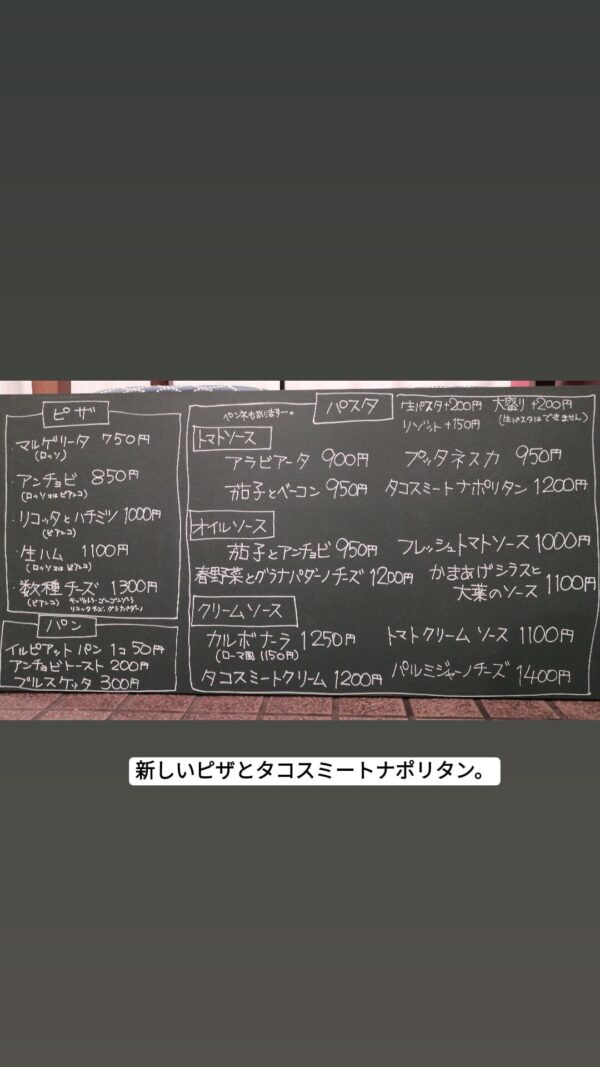 ピザ
・マルゲリータ 750円
(ロッソ)
・アンチョビ 850円
(ロッソ又はビアンコ)
・リコッタとハチミツ 1000円
(ビアンコ)
・生ハム 1100円
(ロッソ又はビアンコ)
・数種チーズ 1300円
(ビアンコ)
パン
イルピアット パン 1コ 50円
アンチョビトースト 200円
ブルスケッタ 300円
ペンネもありますー。
パスタ
生パスタ+200円 大盛り+200円
リゾット+150円 (生パスタはできません)
トマトソース
アラビアータ 900円 プッタネスカ 950円
茄子とベーコン 950円 タコスミートナポリタン 1200円
オイルソース
茄子とアンチョビ 950円 フレッシュトマトソース 1000円
春野菜とグラナパダーノチーズ 1200円 かまあげシラスと
大葉のソース 1100円
クリームソース
カルボナーラ 1250円 トマトクリームソース 1100円
(ローマ風 1150円)
タコスミートクリーム 1200円 パルミジャーノチーズ 1400円
新しいピザとタコスミートナポリタン。